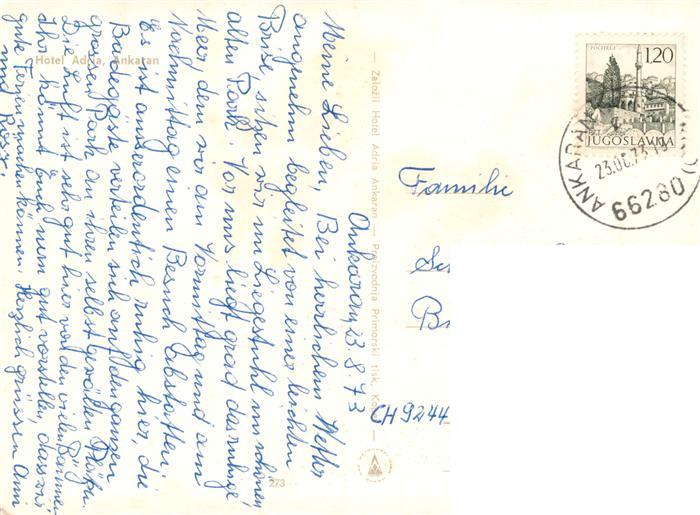 Ankaran, 23 8 73
Meine Lieben, Bei herrlichem Wetter
angenehm begleitet von einer leichten
Brise, sitzen wir im Liegestuhl im schönen,
alten Park. Vor uns liegt grad das ruhige
Meer, dem wir am Vormittag und am
Nachmittag einen Besuch abstatten.
Es ist ausserordentlich ruhig hier, die
Badegäste verteilen sich auf den ganzen
grossen Park an ihren selbst gewählten
Die Luft ist sehr gut hier von den vielen Bäumen
Ihr könnt euch nun gut vorstellen, dass wir
gute Ferien machen können. Herzlich grüssen
und Rosy.
Hotel Adria, Ankaran
— Založil Hotel Adria Ankaran — Proizvodnja Primorski tisk,
273
POČITELJ
1,20
JUGOSLAVIJA
ANKARAN
23.08.73
66280
Familie
CH 9244